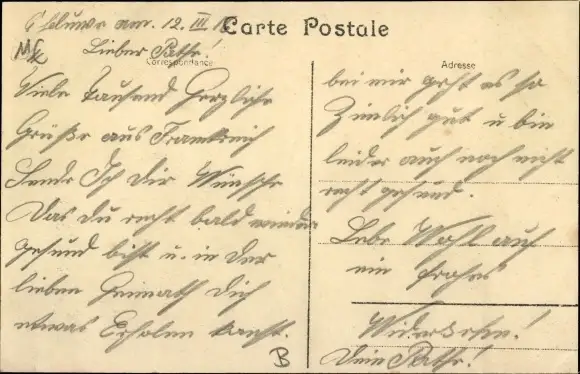 am. 12. III
Carte Postale
Lieber Pathe!
Correspondance
Viele Tausend Herzliche
Grüße aus Frankreich
Sende Ich Dir Wünsche
Das du recht bald wieder
gesund bist u. in der
lieben Heimath Dich
etwas Erholen kanst.
B
Adresse
bei mir geht es so
Zimlich gut u bin
leider auch noch nicht
recht gesund.
Lebe Wohl auf
ein frohes
Widersehn!
Dein Pathe!